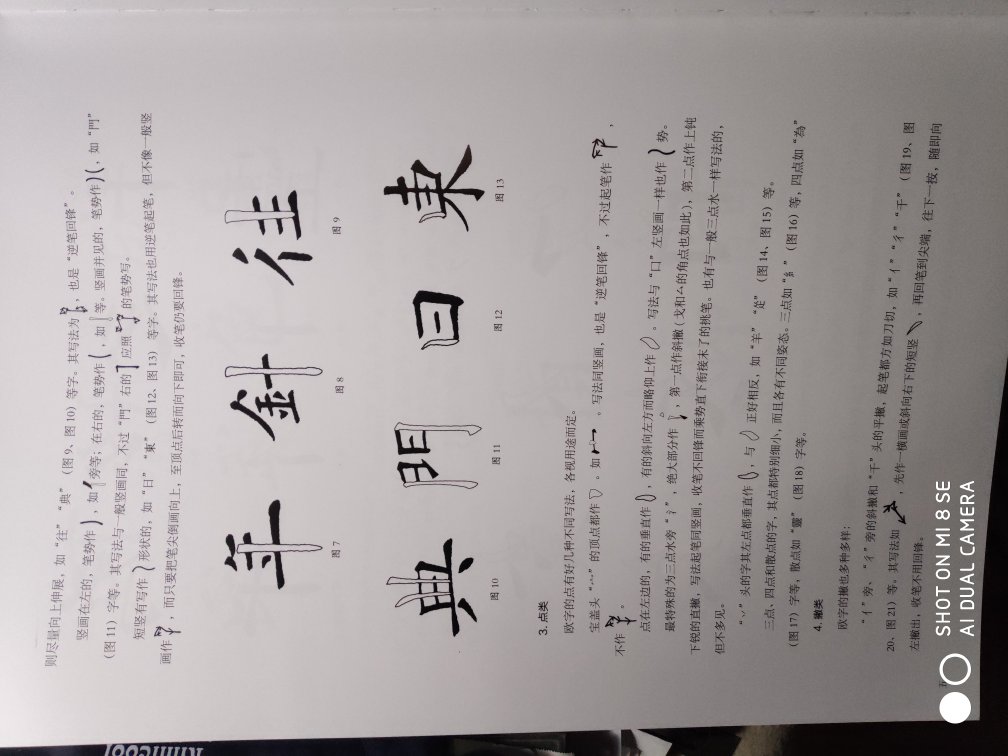 则尽量向上伸展，如“往”“典”（图 9、图 10）等字。其写法为 ，也是“逆笔回锋”。
竖画在左的，笔势作 ，如 旁等；在右的，笔势作 ，如 等。竖画并见的，笔势作 ，如“門”
（图 11）字等。其写法与一般竖画同，不过“門”右的 应照 的笔势写。
短竖有写作 形状的，如“日”“東”（图 12、图 13）等字。其写法也用逆笔起笔，但不像一般竖
画作 ，而只要把笔尖倒画向上，至顶点后转而向下即可，收笔仍要回锋。
年 針 往
图 7 图 8 图 9
典 門 日 東
图 10 图 11 图 12 图 13
3. 点类
欧字的点有好几种不同写法，各视用途而定。
宝盖头“宀”的顶点都作 。如 。写法同竖画，也是“逆笔回锋”，不过起笔作 ，
不作 。
点在左边的，有的垂直作 ，有的斜向左方而略仰上作 。写法与“口”左竖画一样也作 势。
最特殊的为三点水旁“氵”，绝大部分作 ，第一点作斜撇（戈和厶的角点也如此），第二点作上钝
下锐的直撇，写法起笔同竖画，收笔不回锋而乘势直下衔接末了的挑笔。也有与一般三点水一样写法的，
但不多见。
“丷”头的字其左点都垂直作 ，与 正好相反，如“羊”“定”（图 14、图 15）等。
三点、四点和散点的字，其点都特别细小，而且各有不同姿态。三点如“糹”（图 16）等，四点如“為”
（图 17）字等，散点如“靈”（图 18）字等。
4. 撇类
欧字的撇也多种多样：
“亻”旁、“彳”旁的斜撇和“干”头的平撇，起笔都方如刀切，如“亻”“彳”“干”（图 19、图
20、图 21）等。其写法如 ，先作一横画或斜向右下的短竖 ，再回笔到尖端，往下一按，随即向
左撇出，收笔不用回锋。
SHOT ON MI 8 SE
AI DUAL CAMERA